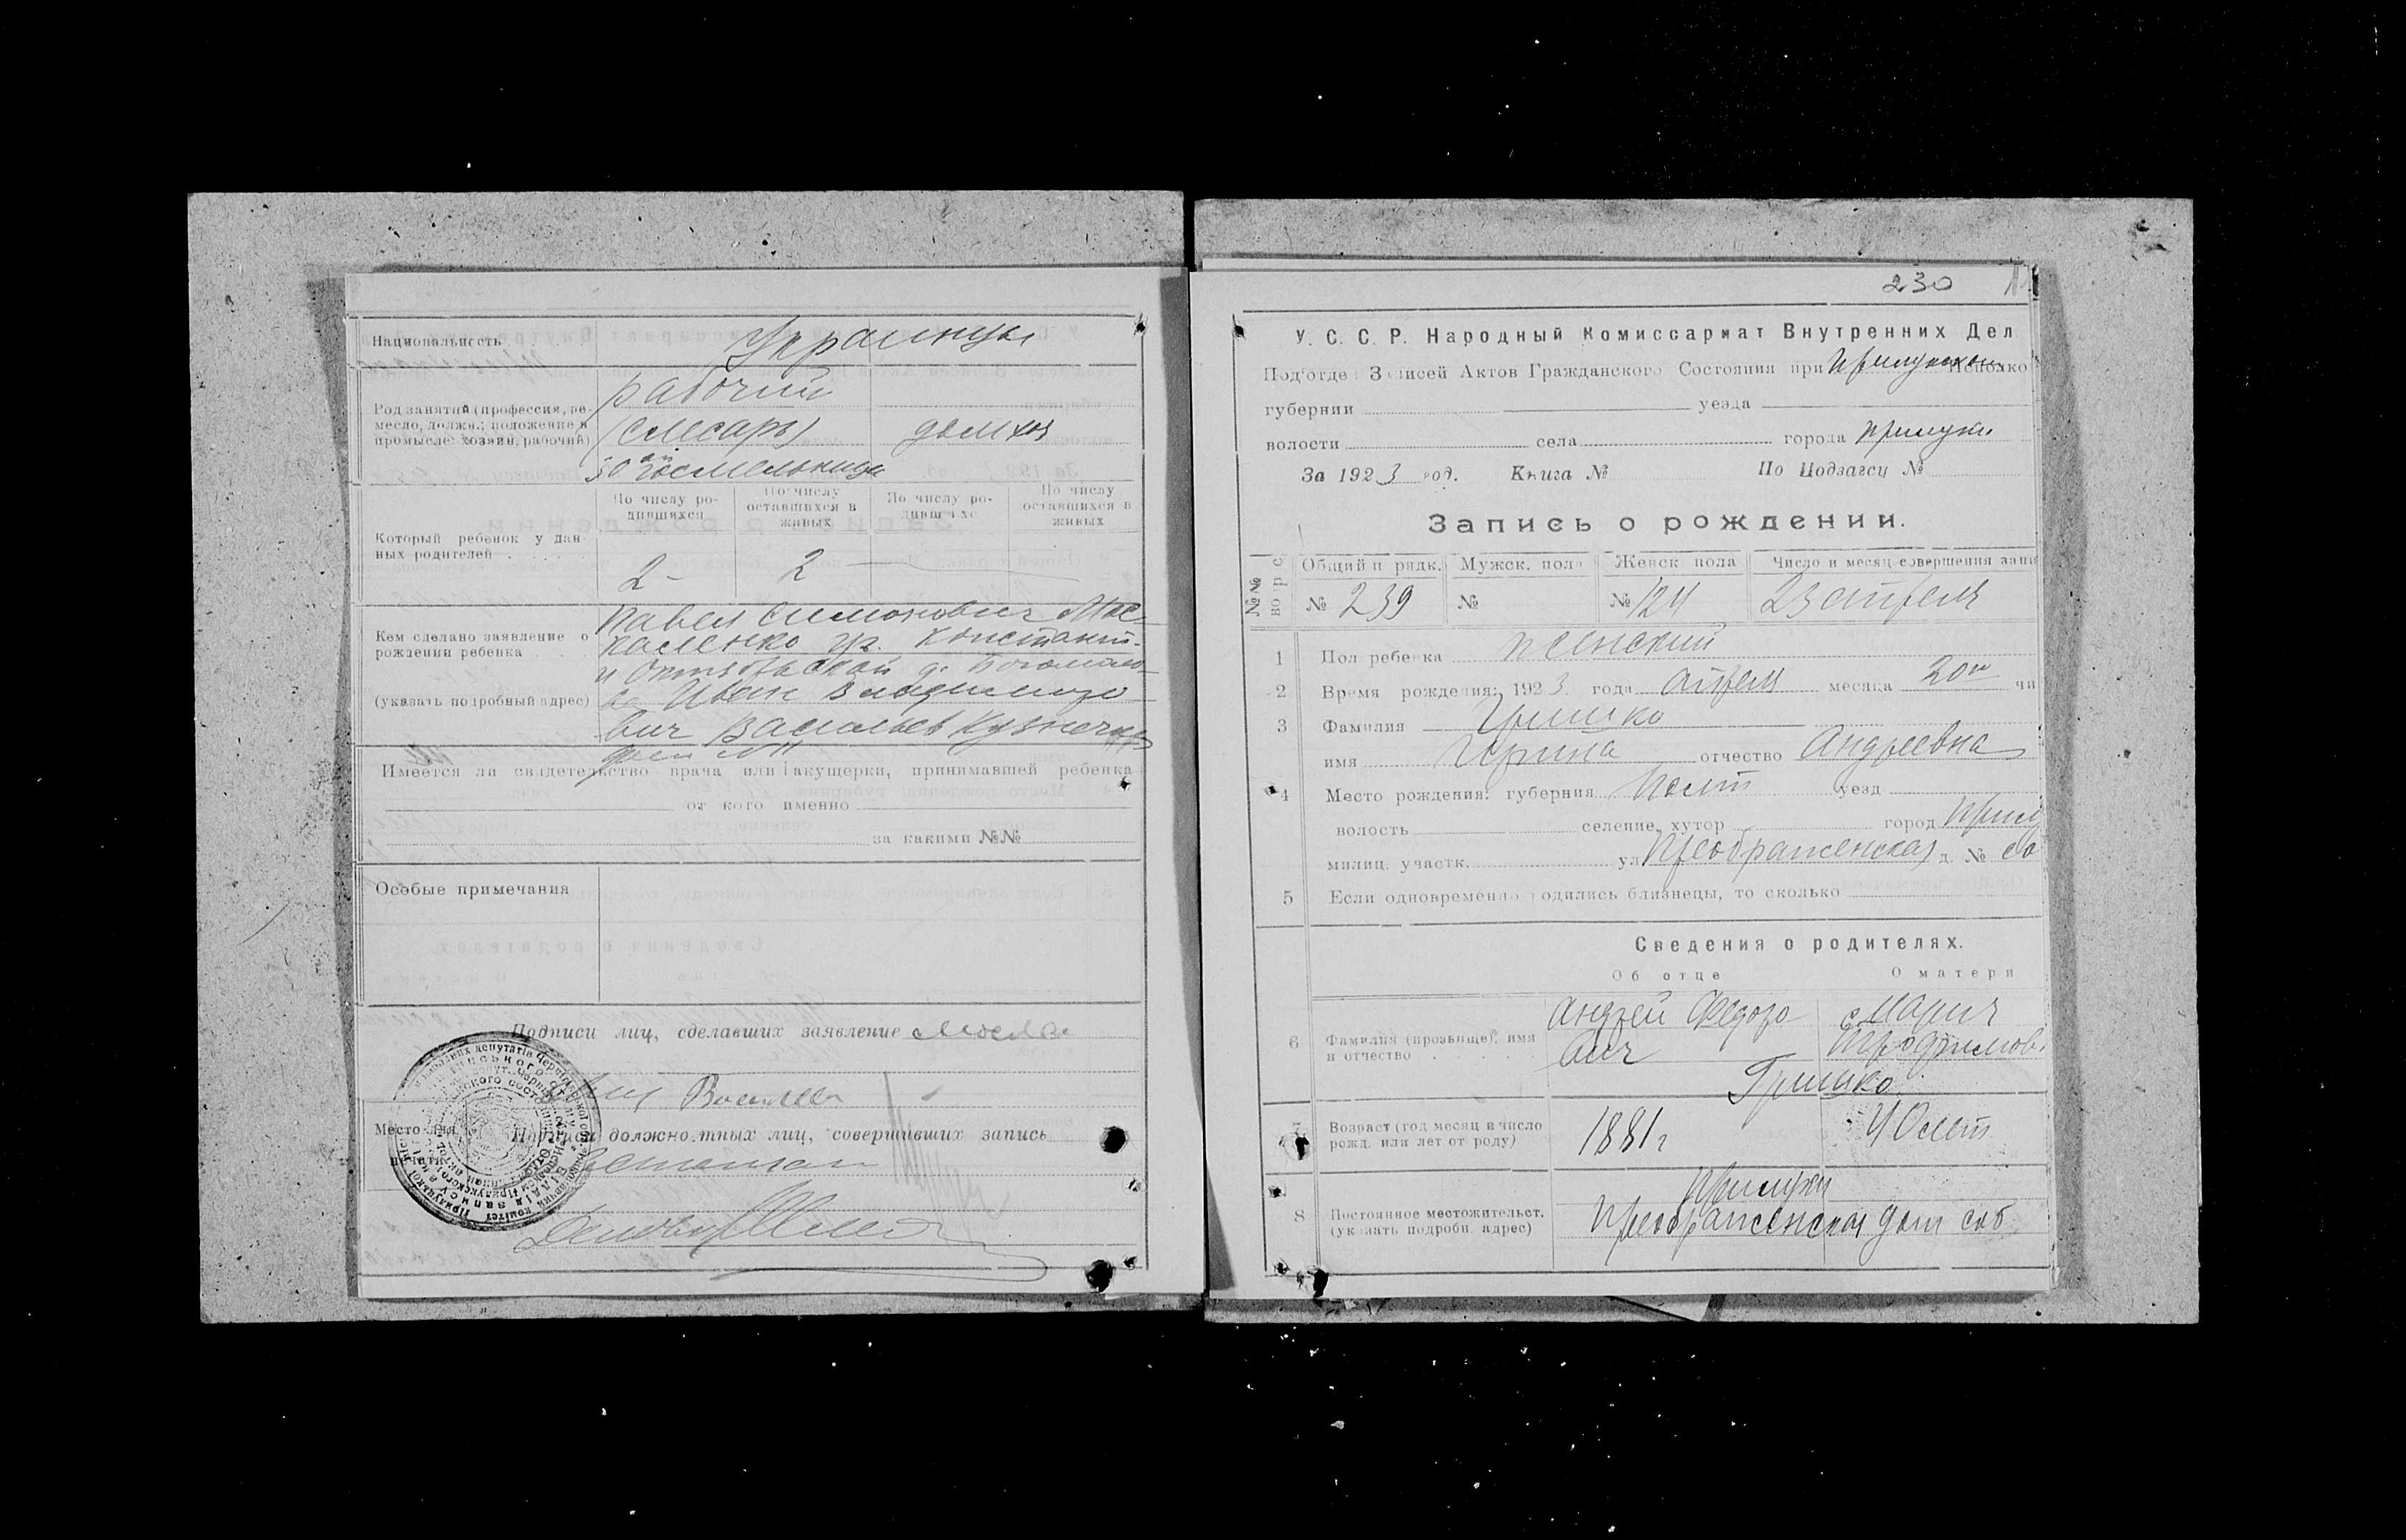 Национальность Украинцы
Род занятий (профессия, ре-
месло, должн.; положение в
промысле: хозяин, рабочий)
рабочий
(слесарь) домхоз
госмельница
Который ребенок у дан-
ных родителей
По числу ро-
дившихся
По числу
оставшихся в
живых
По числу ро-
дившихся
По числу
оставшихся в
живых
2 2
Кем сделано заявление о
рождении ребенка
(указать подробный адрес)
Павел Симонович Мос-
каленко уг. Константин.
и Октябрьской д.
Иван Владимиро
вич Васильев
дом №
Имеется ли свидетельство врача или акушерки, принимавшей ребенка
от кого именно
за какими №№
Особые примечания
Подписи лиц, сделавших заявление
Место для
печати
Подписи должностных лиц, совершивших запись
230
У. С. С. Р. Народный Комиссариат Внутренних Дел
Подотдел Записей Актов Гражданского Состояния при Прилуцком Исполко
губернии уезда
волости села города Прилуки
За 1923 год. Книга № По Подзагсу №
Запись о рождении.
№№
Общий п рядк. Мужск. пола Женск пола Число и месяц совершения запи
№ 239 № № 124 23 апреля
1 Пол ребенка женский
2 Время рождения: 1923 года апреля месяца 20го чи
3 Фамилия Гришко
имя Ирина отчество Андреевна
4 Место рождения: губерния Полт уезд
волость селение, хутор город Прил
милиц. участк. ул Преображенская д. № со
5 Если одновременно родились близнецы, то сколько
Сведения о родителях.
Об отце О матери
6 Фамилия (прозвище), имя
и отчество
Андрей Федоро
вич
Мария
Трофимов
Гришко
7 Возраст (год месяц и число
рожд. или лет от роду)
1881 г 40 лет
8 Постоянное местожительст.
(указать подробн. адрес)
Прилуки
Преображенская дом соб